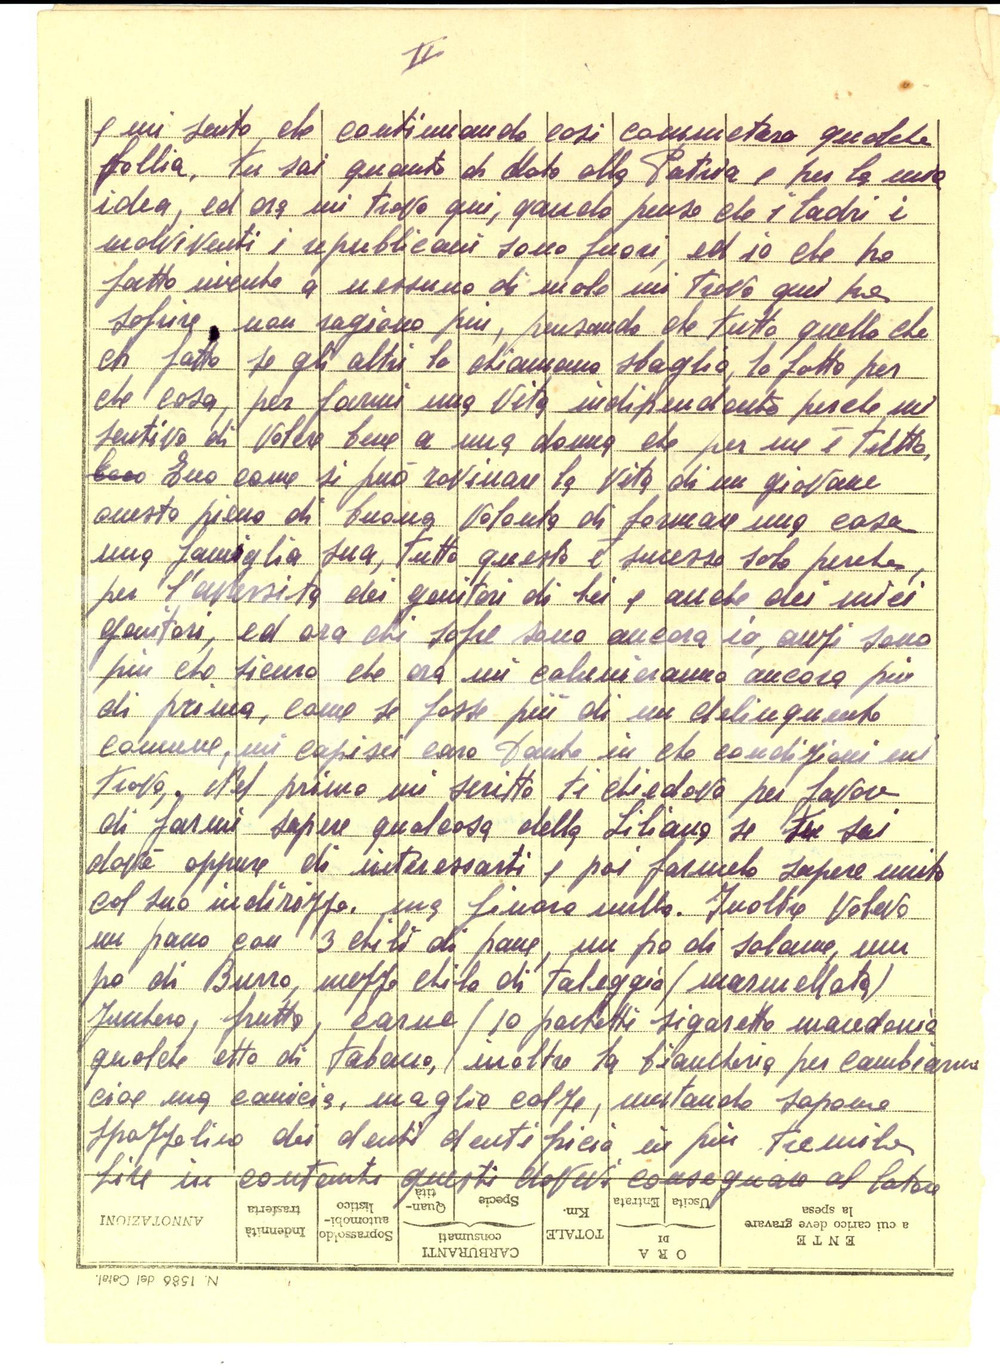 II
e mi sento che continuando così commeterò qualche
follia, tu sai quanto di dato alla Patria e per la mia
idea, ed ora mi trovo qui, quando penso che i ladri i
malviventi i republicani sono fuori, ed io che ho
fatto niente a nessuno di male mi trovo qui ha
sofrire, non ragiono più, pensando che tutto quello che
ch fatto se gli altri lo chiamano sbaglio, lo fatto per
che cosa, per farmi una vita indipendente perche mi
sentivo di volere bene a una donna che per me è tutto,
Eno come si può rovinare la vita di un giovane
onesto pieno di buona volontà di formare una casa
una famiglia sua, tutto questo è sucesso solo perche,
per l'aversità dei genitori di lei e anche dei miei
genitori, ed ora chi sofre sono ancora io, anzi sono
più che sicuro che ora mi caluniеranno ancora più
di prima, come se fosse più di un delinquente
comune, mi capisci caro Dante in che condizioni mi
trovo. Nel primo mi scritto ti chiedovo per favore
di farmi sapere qualcosa della Liliana se tu sai
dov'è oppure di interessarti e poi farmelo sapere unito
col suo indirizzo. ma finora nulla. Inoltre volevo
un pano con 3 chili di pane, un po di salame, un
po di Burro, mezzo chilo di taleggio (marmellata)
Zuchero, frutta, carne (10 pachetti sigarette macedonia
qualche etto di tabaco, inoltre la biancheria per cambiarmi
cioe una camicia, maglie calze, mutande sapone
spazzolino dei denti dentifricio in più tremila
Lire in contanti questi dovevi consegnare al latore
ENTE
a cui carico deve gravare
la spesa
ORA
DI
Uscita
Entrata
TOTALE
Km.
CARBURANTI
consumati
Specie
Quan-
tità
Soprassoldo
automobi-
listico
Indennità
trasferta
ANNOTAZIONI
N. 1586 del Catal.